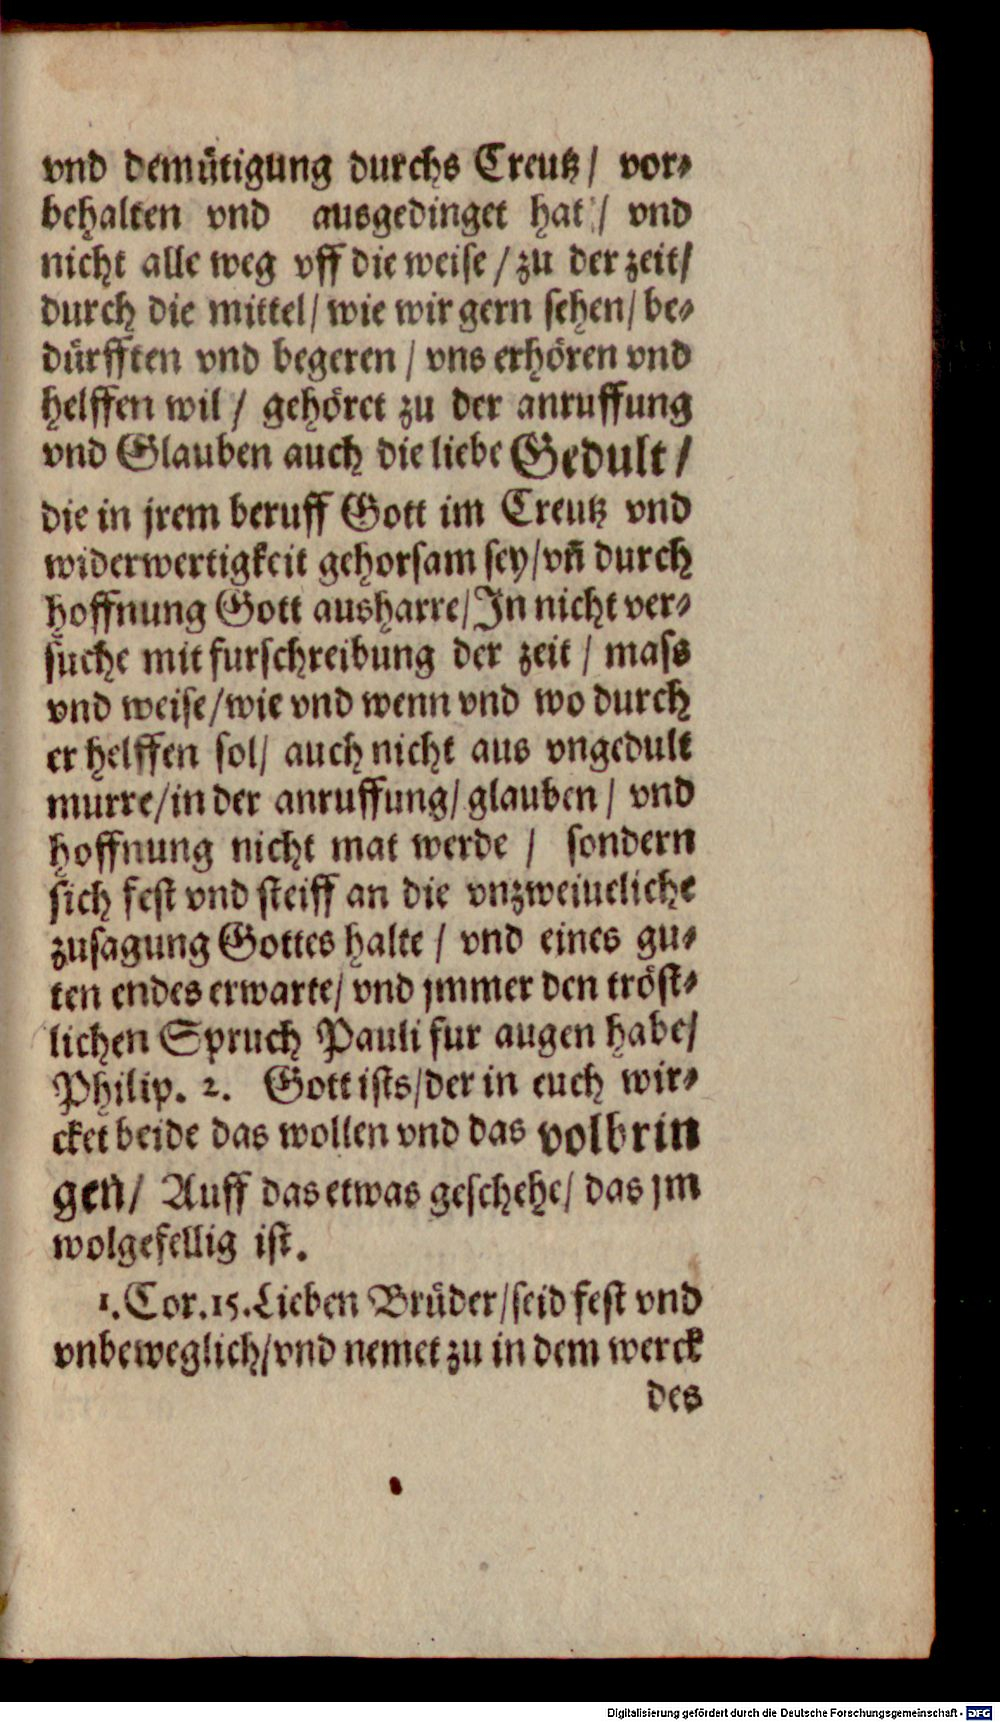 vnd demütigung durchs Creutz/ vor-
behalten vnd ausgedinget hat / vnd
nicht alle weg vff die weise / zu der zeit/
durch die mittel/ wie wir gern sehen/ be-
dürfften vnd begeren / vns erhören vnd
helffen wil / gehöret zu der anruffung
vnd Glauben auch die liebe Gedult /
die in jrem beruff Gott im Creutz vnd
widerwertigkeit gehorsam sey/vñ durch
hoffnung Gott ausharre/Jn nicht ver-
suche mit furschreibung der zeit / mass
vnd weise/wie vnd wenn vnd wo durch
er helffen sol/ auch nicht aus vngedult
murre/in der anruffung/ glauben / vnd
hoffnung nicht mat werde / sondern
sich fest vnd steiff an die vnzweiueliche
zusagung Gottes halte / vnd eines gu-
ten endes erwarte/ vnd jmmer den tröst-
lichen Spruch Pauli fur augen habe/
Philip. 2. Gott ists/der in euch wir-
cket beide das wollen vnd das volbrin
gen/ Auff das etwas geschehe/ das jm
wolgefellig ist.
1. Cor. 15. Lieben Brüder/seid fest vnd
vnbeweglich/vnd nemet zu in dem werck
des
Digitalisierung gefördert durch die Deutsche Forschungsgemeinschaft - DFG